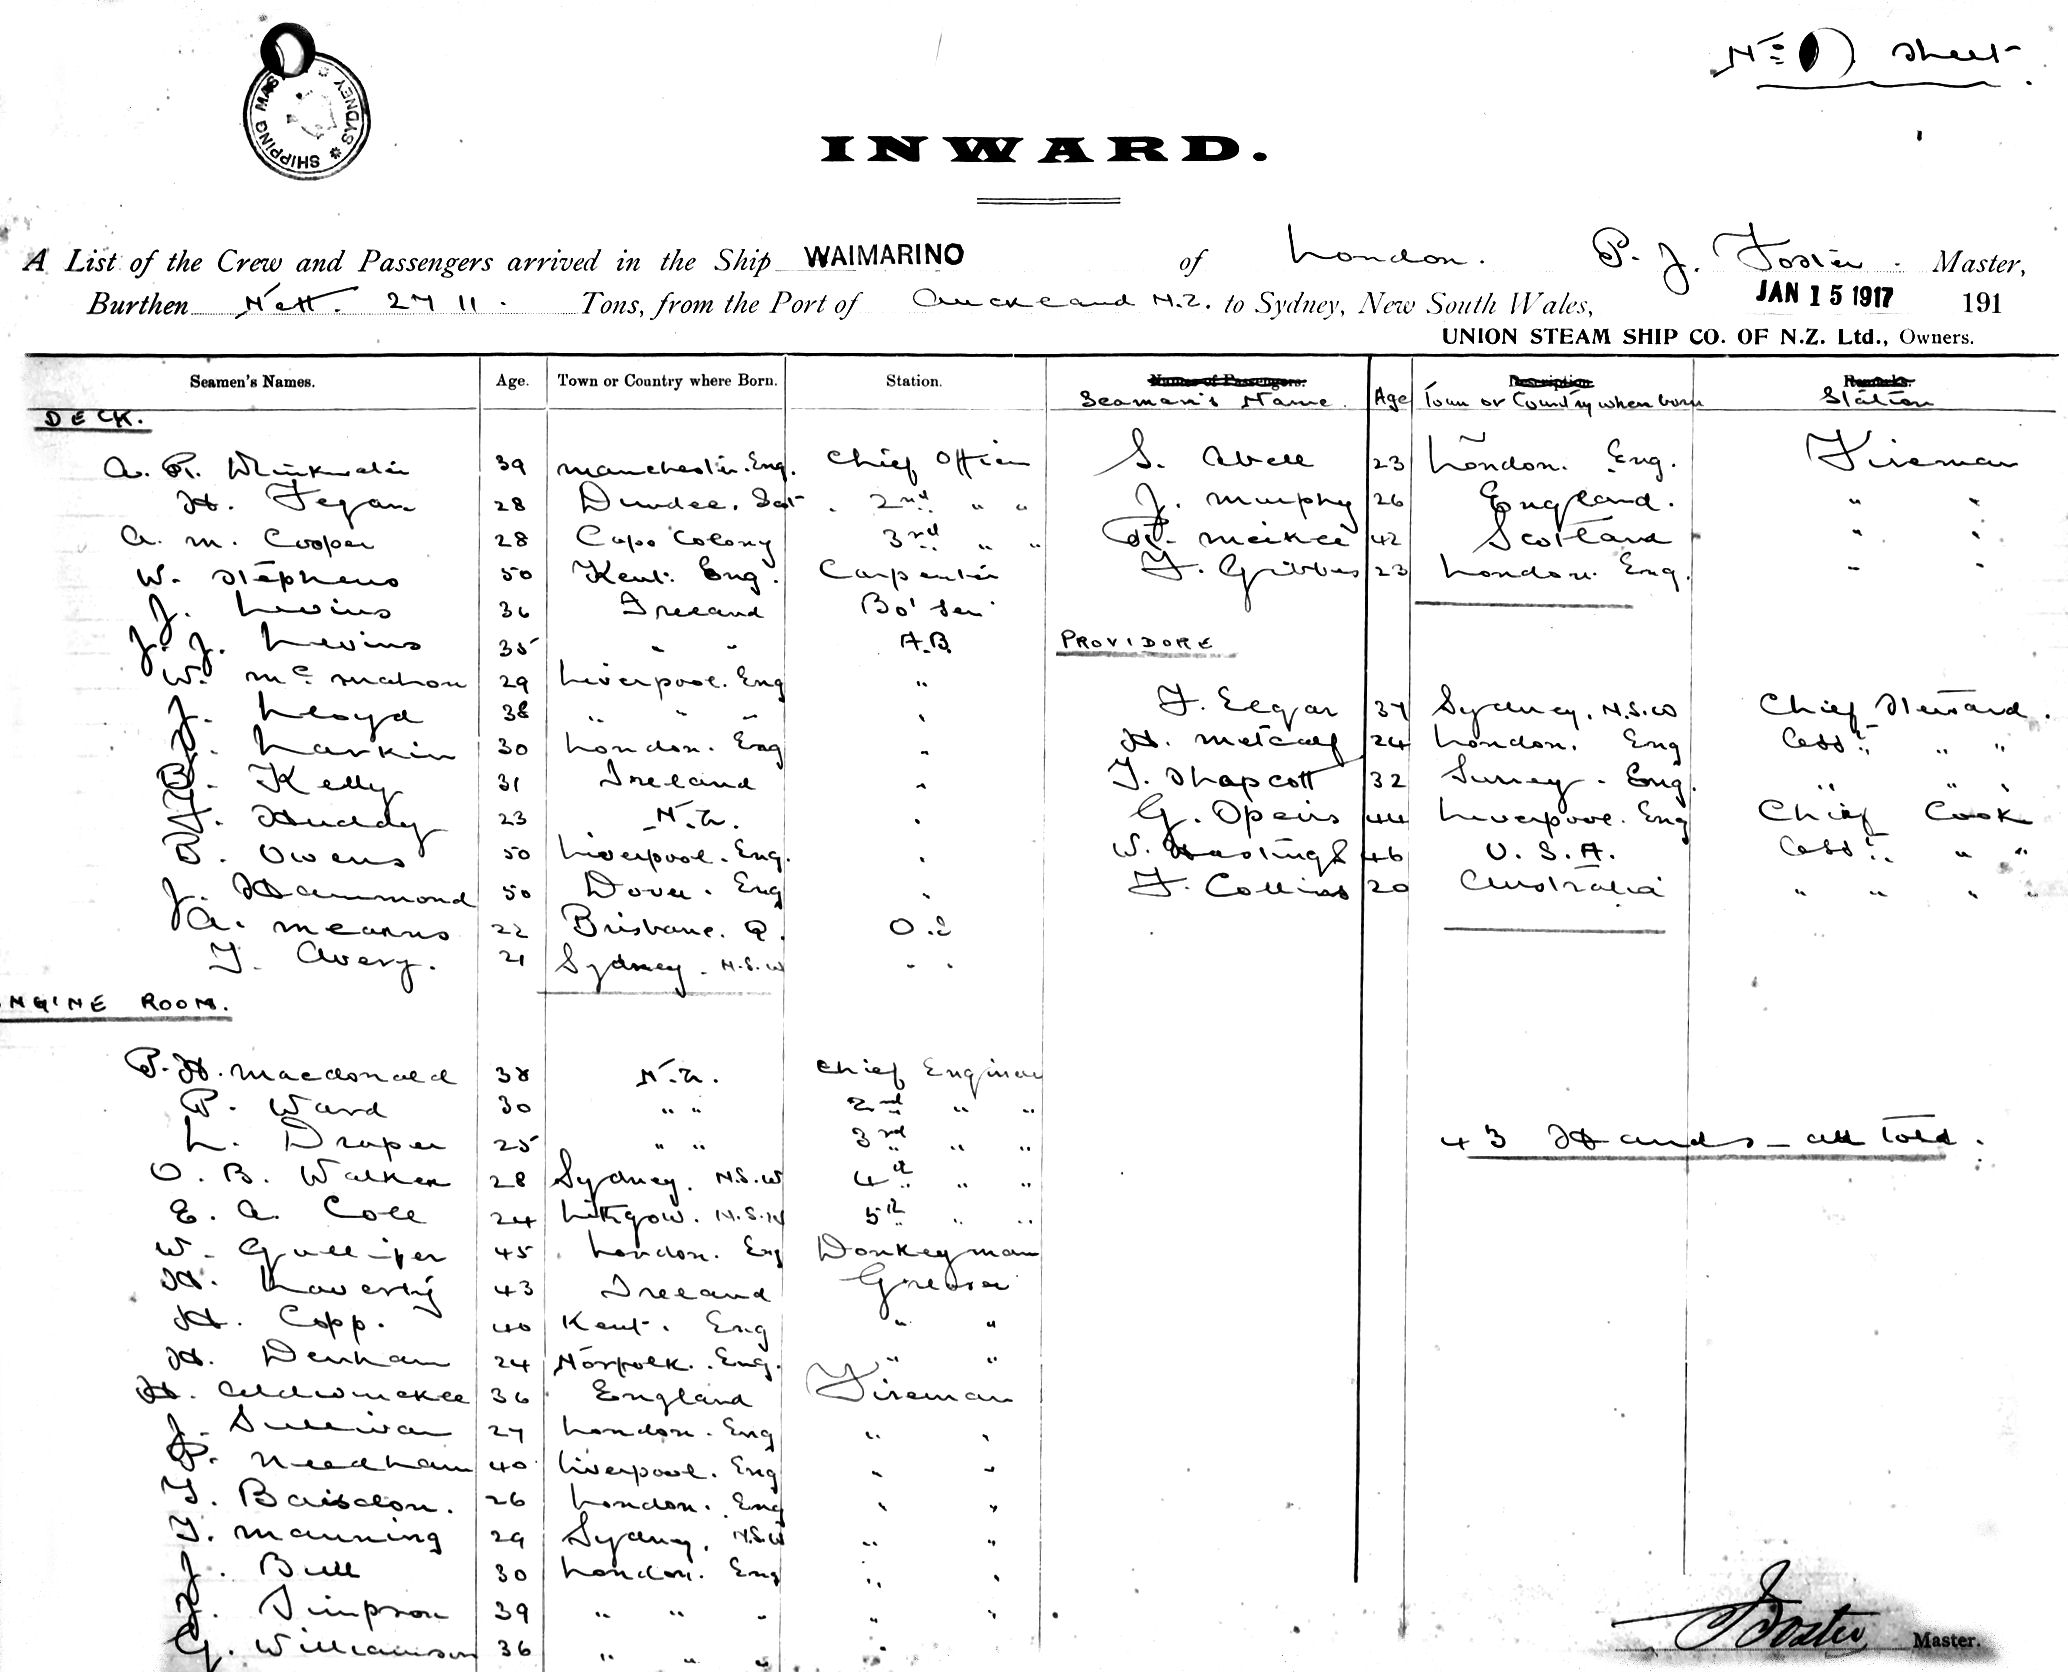 No 1) Sheet
SHIPPING MAS
SYDNEY
INWARD.
A List of the Crew and Passengers arrived in the Ship WAIMARINO of London. P. J. Foster. Master,
Burthen Nett. 2711. Tons, from the Port of Auckland N.Z. to Sydney, New South Wales, JAN 15 1917 191
UNION STEAM SHIP CO. OF N.Z. Ltd., Owners.
Seamen's Names. Age. Town or Country where Born. Station. Names of Passengers. Description Remarks.
Seaman's Name. Age Town or Country where born Station
DECK.
A. R. 39 Manchester. Eng. Chief Officer
H. Fegan 28 Dundee. Scot. 2nd " "
A. M. Cooper 28 Cape Colony 3rd " "
W. Stephens 50 Kent. Eng. Carpenter
J. Levins 36 Ireland Bo'sen
J. J. Levins 35 " " A.B.
W. McMahon 29 Liverpool. Eng "
J. Lloyd 38 " " " "
Larkin 30 London. Eng "
Kelly 31 Ireland "
Huddy 23 N.Z. "
B. Owens 50 Liverpool. Eng. "
J. Hammond 50 Dover. Eng "
A. Mearns 22 Brisbane. Q. O.S
T. Avery. 21 Sydney. N.S.W " "
ENGINE ROOM.
P. H. Macdonald 38 N.Z. Chief Engineer
P. Ward 30 " " 2nd " "
L. Draper 25 " " 3rd " "
O. B. Walker 28 Sydney. N.S.W 4th " "
E. A. Cole 24 Lithgow. N.S.W 5th " "
W. Gulliper 45 London. Eng Donkeyman
H. Laverty 43 Ireland Greaser
H. Copp. 40 Kent. Eng " "
H. Denham 24 Norfolk. Eng. " "
H. Aldwinckle 36 England Fireman
J. Sullivan 27 London. Eng " "
P. Needham 40 Liverpool. Eng " "
T. Baisdon. 26 London. Eng " "
T. Manning 29 Sydney. N.S.W " "
J. Bull 30 London. Eng " "
J. Simpson 39 " " " " "
G. Williamson 36 " " " "
S. Abell 23 London. Eng. Fireman
J. Murphy 26 England. " "
R. Meikle 42 Scotland " "
F. Gibbes 23 London. Eng. " "
PROVIDORE
F. Elgar 37 Sydney. N.S.W Chief Steward.
H. Metcalf 24 London. Eng Asst " "
T. Shapcott 32 Surrey. Eng. " "
G. Opeirs 44 Liverpool. Eng Chief Cook
W. Hastings 46 U.S.A. Asst " "
F. Collins 20 Australia " " " "
43 Hands - all told.
J Foster Master.